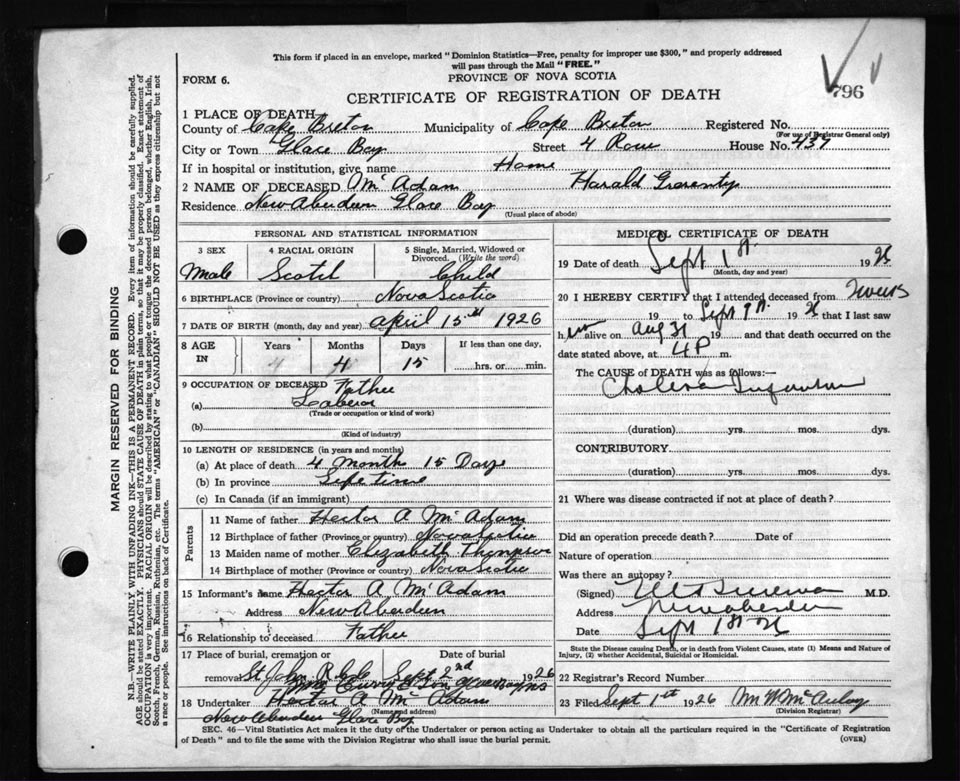 This form if placed in an envelope, marked "Dominion Statistics—Free, penalty for improper use $300," and properly addressed
will pass through the Mail "FREE."
FORM 6.
PROVINCE OF NOVA SCOTIA
796
CERTIFICATE OF REGISTRATION OF DEATH
1 PLACE OF DEATH
County of Cape Breton Municipality of Cape Breton Registered No.
(For use of Registrar General only)
City or Town Glace Bay Street 4 Row House No. 437
If in hospital or institution, give name Home
2 NAME OF DECEASED McAdam Harald
Residence New Aberdeen Glace Bay
(Usual place of abode)
PERSONAL AND STATISTICAL INFORMATION
3 SEX 4 RACIAL ORIGIN 5 Single, Married, Widowed or
Divorced. (Write the word)
Male Scotch Child
6 BIRTHPLACE (Province or country) Nova Scotia
7 DATE OF BIRTH (month, day and year) April 15th 1926
8 AGE IN Years Months Days If less than one day,
4 4 15 hrs. or min.
9 OCCUPATION OF DECEASED Father
(a) Laberor
(Trade or occupation or kind of work)
(b)
(Kind of industry)
10 LENGTH OF RESIDENCE (in years and months)
(a) At place of death 4 Months 15 Days
(b) In province Life time
(c) In Canada (if an immigrant)
Parents
11 Name of father Hector A McAdam
12 Birthplace of father (Province or country) Nova Scotia
13 Maiden name of mother Elizabeth Thompson
14 Birthplace of mother (Province or country) Nova Scotia
15 Informant's name Hector A McAdam
Address New Aberdeen
16 Relationship to deceased Father
17 Place of burial, cremation or Date of burial
removal St John Sept 2nd 1926
18 Undertaker Hector A McAdam
(Name and address)
New Aberdeen Glace Bay
MEDICAL CERTIFICATE OF DEATH
19 Date of death Sept 1st 1926
(Month, day and year)
20 I HEREBY CERTIFY that I attended deceased from 2 weeks
19 to Sept 1st 1926 that I last saw
him alive on Aug 31 19 and that death occurred on the
date stated above, at 4 P m.
The CAUSE of DEATH was as follows:—
Cholera Infantum
(duration) yrs. mos. dys.
CONTRIBUTORY
(duration) yrs. mos. dys.
21 Where was disease contracted if not at place of death?
Did an operation precede death? Date of
Nature of operation
Was there an autopsy?
(Signed) M.D.
Address New Aberdeen
Date Sept 1st 26
State the Disease causing Death, or in death from Violent Causes, state (1) Means and Nature of
Injury, (2) whether Accidental, Suicidal or Homicidal.
22 Registrar's Record Number
23 Filed Sept 1st 1926 McAulay
(Division Registrar)
SEC. 46—Vital Statistics Act makes it the duty of the Undertaker or person acting as Undertaker to obtain all the particulars required in the "Certificate of Registration
of Death" and to file the same with the Division Registrar who shall issue the burial permit.
(OVER)
MARGIN RESERVED FOR BINDING
N.B.—WRITE PLAINLY, WITH UNFADING INK—THIS IS A PERMANENT RECORD. Every item of information should be carefully supplied.
AGE should be stated EXACTLY. PHYSICIANS should STATE CAUSE OF DEATH in plain terms, so that it may be properly classified. Exact statement of
OCCUPATION is very important. RACIAL ORIGIN will be described by stating to what people or tongue the deceased person belonged, whether English, Irish,
Scotch, French, German, Russian, Ruthenian, etc. The terms "AMERICAN" or "CANADIAN" SHOULD NOT BE USED as they express citizenship but not
a race or people. See instructions on back of Certificate.